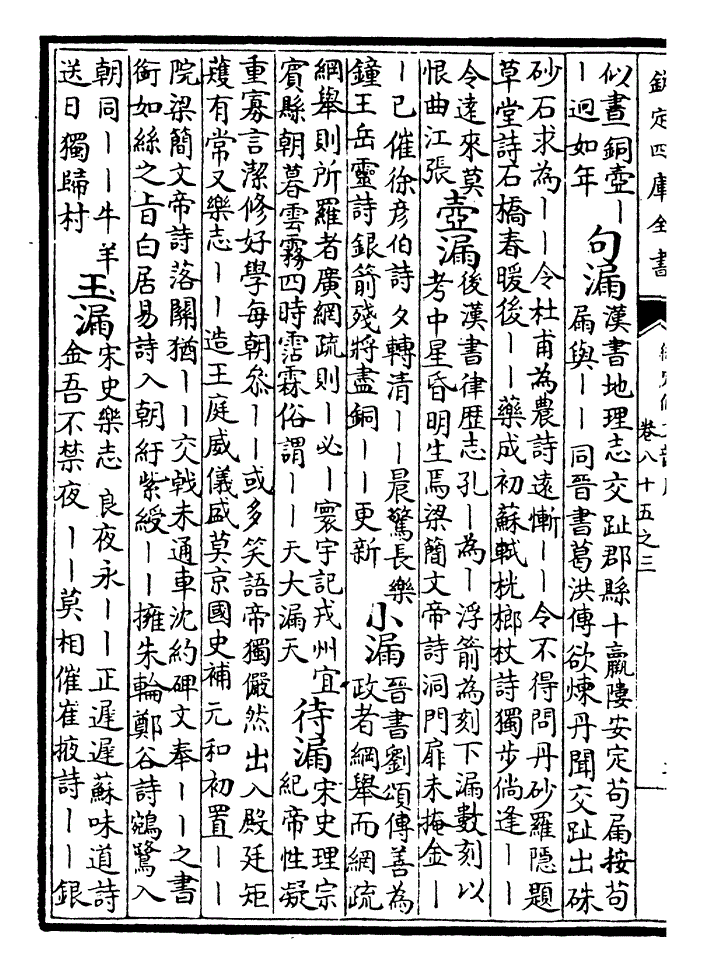 欽定四庫全書
卷八十五之三
似晝銅壺丨
丨迥如年
句漏
漢書地理志交趾郡縣十羸𨻻安定苟屚按苟
屚與丨丨同晉書葛洪傳欲煉丹聞交趾出硃
砂石求為丨丨令杜甫為農詩遠慚丨丨令不得問丹砂羅隱題
草堂詩石橋春暖後丨丨藥成初蘇軾桄榔杖詩獨步倘逢丨丨
令遠來莫
恨曲江張
壺漏
後漢書律歷志孔丨為丨浮箭為刻下漏數刻以
考中星昏明生焉梁簡文帝詩洞門扉未掩金丨
丨已催徐彦伯詩夕轉清丨丨晨驚長樂
鐘王岳靈詩銀箭殘將盡銅丨丨更新
小漏
晉書劉頌傳善為
政者綱舉而網疏
綱舉則所羅者廣網疏則丨必丨寰宇記戎州宜
賓縣朝暮雲霧四時霑霖俗謂丨丨天大漏天
待漏
宋史理宗
紀帝性凝
重寡言潔修好學每朝叅丨丨或多笑語帝獨儼然出入殿廷矩
矱有常又樂志丨丨造王庭威儀盛莫京國史補元和初置丨丨
院梁簡文帝詩落關猶丨丨交戟未通車沈約碑文奉丨丨之書
銜如絲之㫖白居易詩入朝紆紫綬丨丨擁朱輪鄭谷詩鵷鷺入
朝同丨丨牛羊
送日獨歸村
玉漏
宋史樂志良夜永丨丨正遲遲蘇味道詩
金吾不禁夜丨丨莫相催崔掖詩丨丨銀